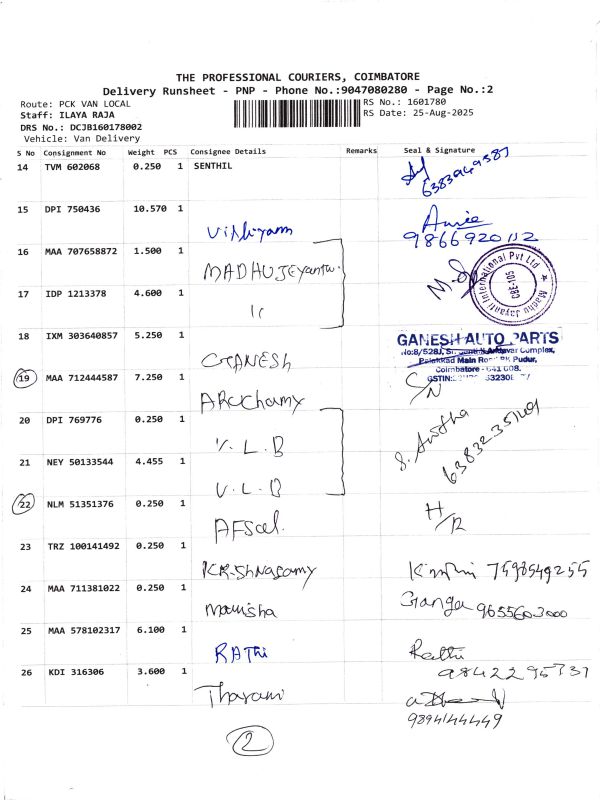 THE PROFESSIONAL COURIERS, COIMBATORE
Delivery Runsheet - PNP - Phone No.:9047080280 - Page No.:2
Route: PCK VAN LOCAL
RS No.: 1601780
Staff: ILAYA RAJA
RS Date: 25-Aug-2025
DRS No.: DCJB160178002
Vehicle: Van Delivery
S No Consignment No Weight PCS Consignee Details Remarks Seal & Signature
14 TVM 602068 0.250 1 SENTHIL
6383949587
15 DPI 750436 10.570 1
9866920112
16 MAA 707658872 1.500 1 MADHUJEYantu.
Madhu Jayanti International Pvt Ltd
CBE-105
17 IDP 1213378 4.600 1
18 IXM 303640857 5.250 1 GANESH
GANESH AUTO PARTS
Coimbatore - 641 008.
19 MAA 712444587 7.250 1
S/N
20 DPI 769776 0.250 1 V.L.B
21 NEY 50133544 4.455 1 V.L.B
22 NLM 51351376 0.250 1 AFSal.
H/R
23 TRZ 100141492 0.250 1 KRiShNaSamy
7598549255
24 MAA 711381022 0.250 1 Manisha
Ganga 9655603000
25 MAA 578102317 6.100 1 RAThi
Rathi
26 KDI 316306 3.600 1
9894144449
2